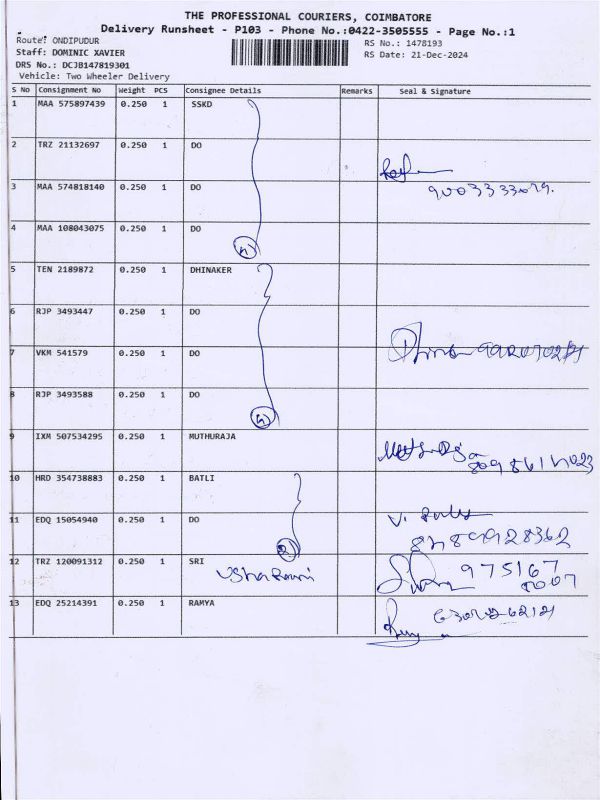 THE PROFESSIONAL COURIERS, COIMBATORE
Delivery Runsheet - P103 - Phone No.:0422-3505555 - Page No.:1
Route: ONDIPUDUR
RS No.: 1478193
Staff: DOMINIC XAVIER
RS Date: 21-Dec-2024
DRS No.: DCJB147819301
Vehicle: Two Wheeler Delivery
S No Consignment No Weight PCS Consignee Details Remarks Seal & Signature
1 MAA 575897439 0.250 1 SSKD
2 TRZ 21132697 0.250 1 DO
3 MAA 574818140 0.250 1 DO
4 MAA 108043075 0.250 1 DO
5 TEN 2189872 0.250 1 DHINAKER
6 RJP 3493447 0.250 1 DO
7 VKM 541579 0.250 1 DO
8 RJP 3493588 0.250 1 DO
9 IXM 507534295 0.250 1 MUTHURAJA
10 HRD 354738883 0.250 1 BATLI
11 EDQ 15054940 0.250 1 DO
12 TRZ 120091312 0.250 1 SRI
975167
8007
13 EDQ 25214391 0.250 1 RAMYA